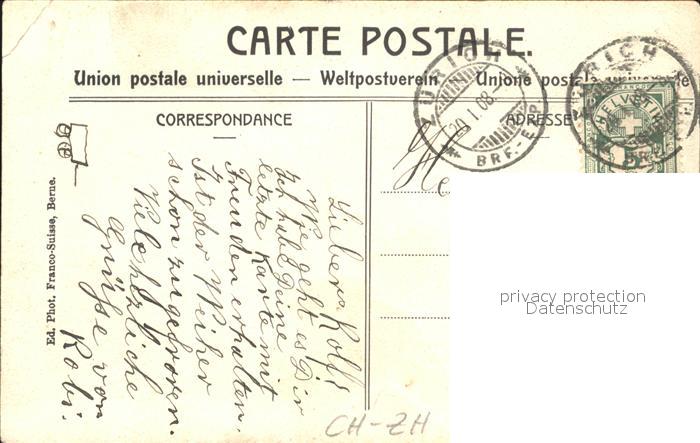 CARTE POSTALE.
Union postale universelle — Weltpostverein — Unione postale universale
CORRESPONDANCE
ADRESSE
ZÜRICH
20.I.08.
BRF.-EXP.
ZÜRICH
HELVETIA
Lieber Rolf!
Wie geht es Dir
Ich habe Deine
letzte Karte mit
Freuden erhalten.
Ist der Weiher
schon zugefroren.
Viele herzliche
Grüße von
Robi.
Ed. Phot. Franco-Suisse, Berne.
privacy protection
Datenschutz
CH-ZH